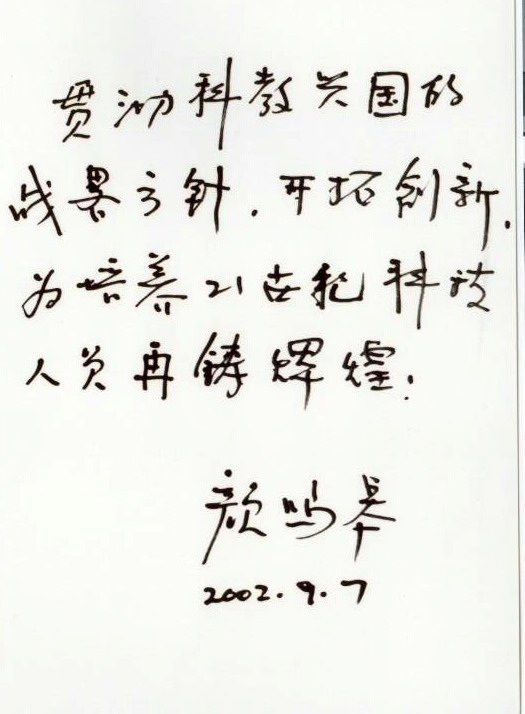 贯彻科教兴国的
战略方针,开拓创新,
为培养21世纪科技
人员再铸辉煌!
颜鸣皋
2002.9.7